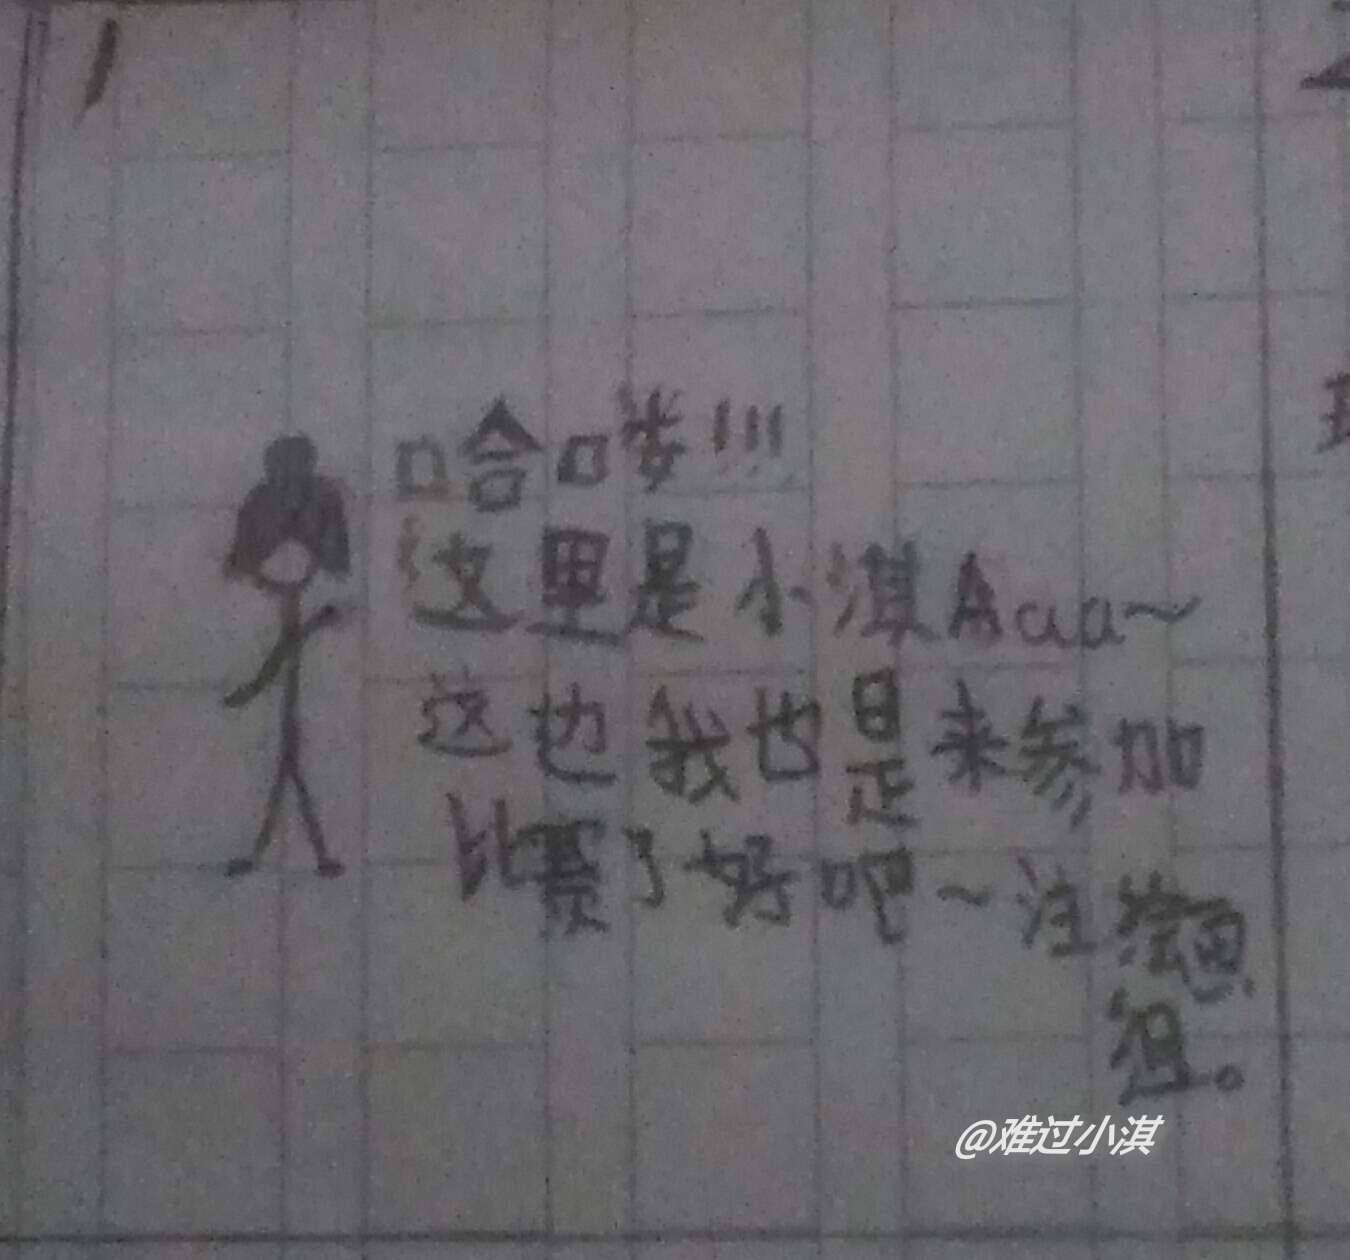 1
哈喽!!!
这里是小淇Aaa~
这边我也是来参加
比赛了好吧~注
@难过小淇